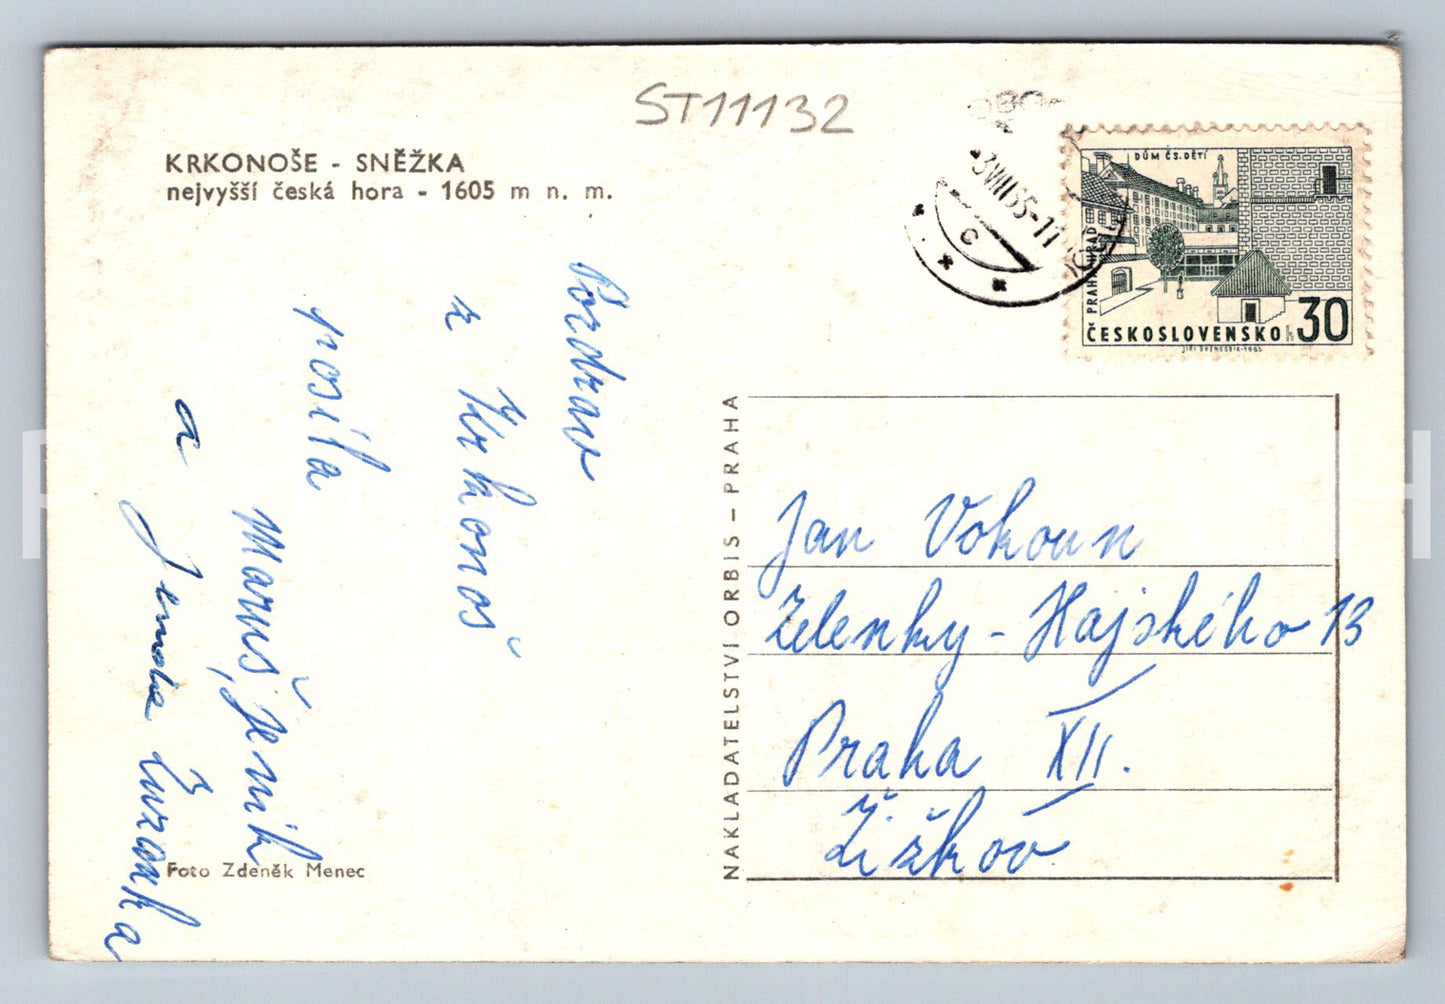 ST11132
KRKONOŠE - SNĚŽKA
nejvyšší česká hora - 1605 m n. m.
Pozdrav
z Krkonoš
posílá
Maruš, Jeník
a
Zuzanka
Foto Zdeněk Menec
NAKLADATELSTVÍ ORBIS - PRAHA
3.VIII.65-11
C
DŮM ČS. DĚTÍ
PRAHA HRAD
ČESKOSLOVENSKO h 30
JIŘÍ ŠVENGSBÍR-1965
Jan Vokoun
Zelenky - Hajského 13
Praha XII.
Žižkov